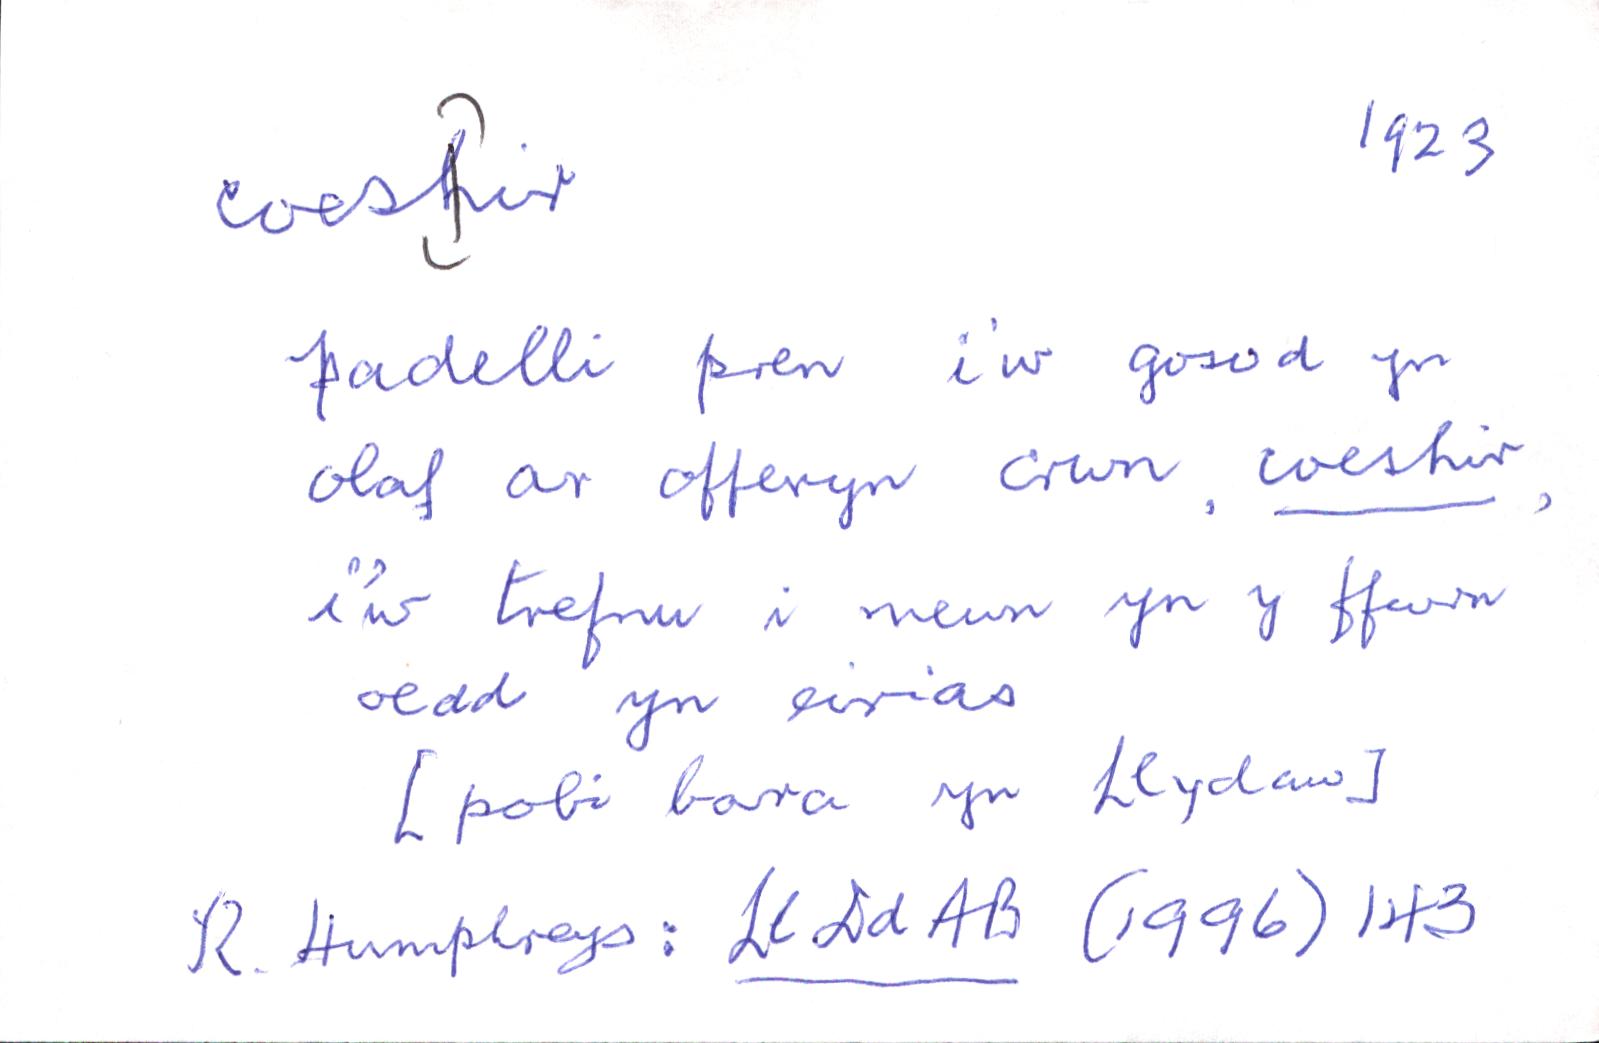 coeshir 1923
padelli pren i'w gosod yn
olaf ar offeryn crwn, coeshir,
i'w trefnu i mewn yn y ffwrn
oedd yn eirias
[pobi bara yn Llydaw]
R. Humphreys: Ll Dd AB (1996) 143